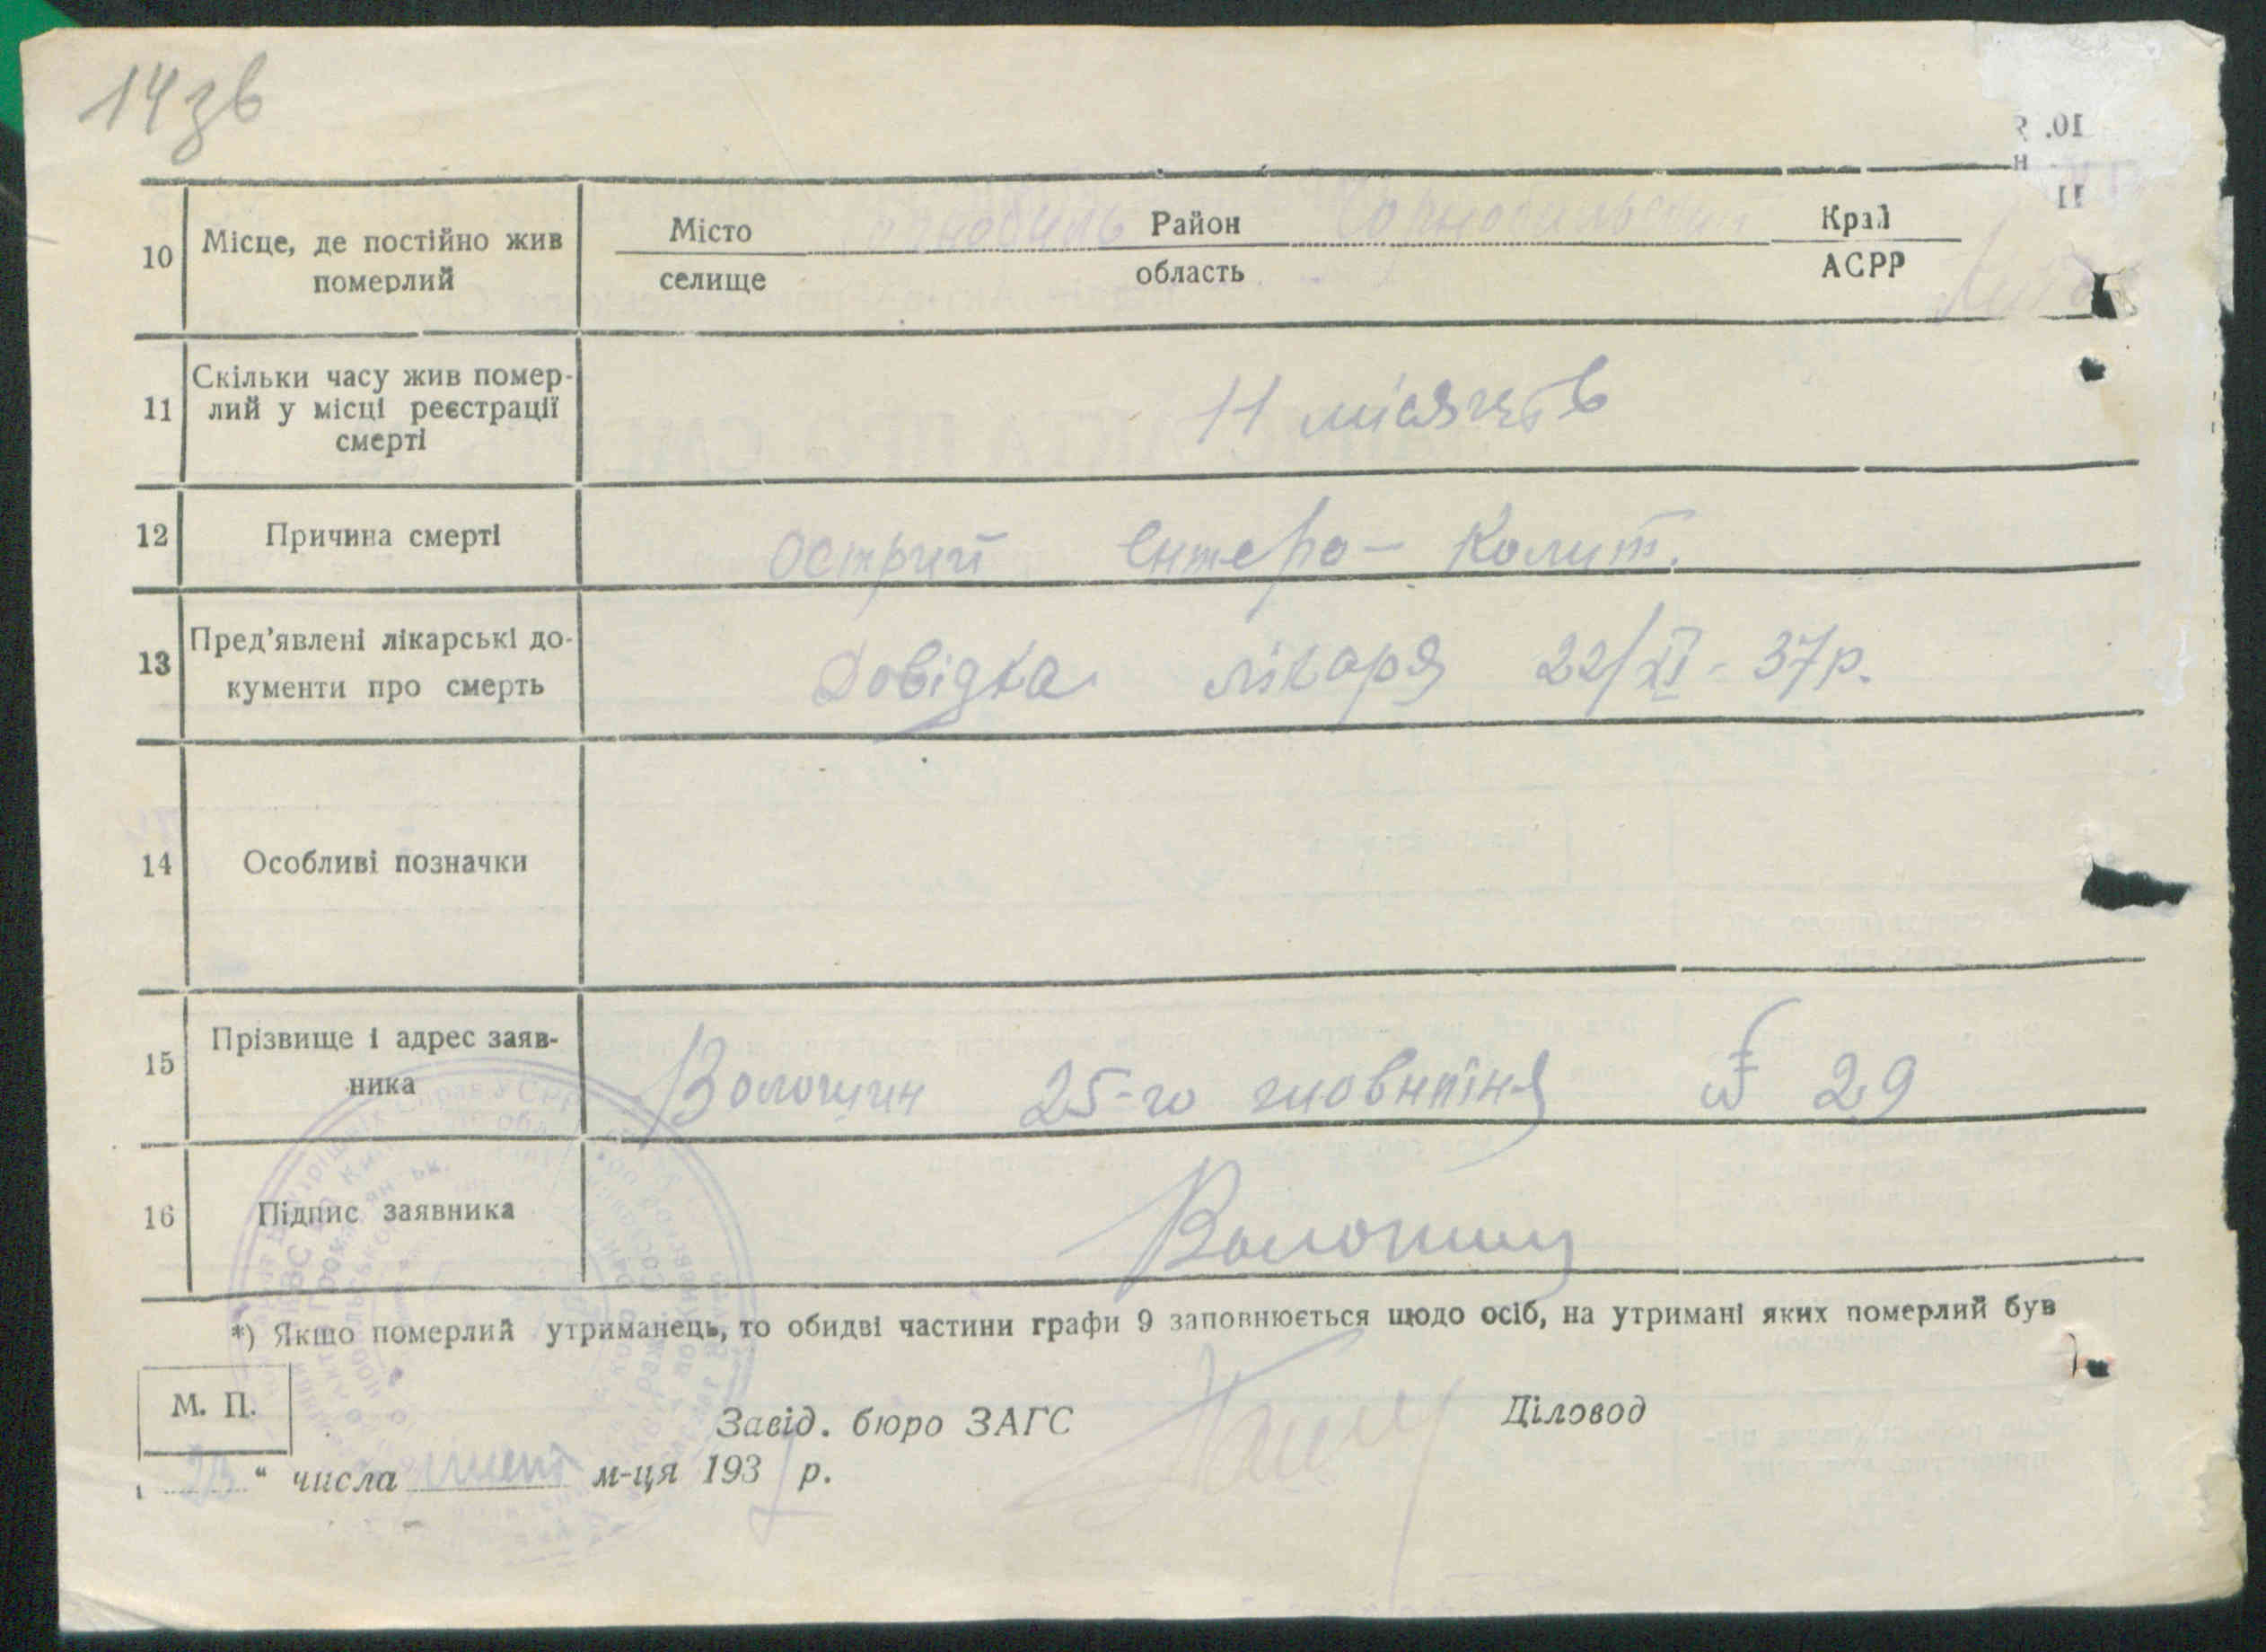 14зв
10 Місце, де постійно жив померлий
Місто Район Чорнобильський Край
селище область АСРР
11 Скільки часу жив помер-
лий у місці реєстрації
смерті
11 місяців
12 Причина смерті Острий Ентеро- Колит.
13 Пред'явлені лікарські до-
кументи про смерть
Довідка лікаря 22/VI - 37р.
14 Особливі позначки
15 Прізвище і адрес заяв-
ника
Волошин 25-го жовтня № 29
16 Підпис заявника Волошин
*) Якщо померлий утриманець, то обидві частини графи 9 заповнюється щодо осіб, на утримані яких померлий був
М. П.
Завід. бюро ЗАГС Діловод
" числа м-ця 1937 р.